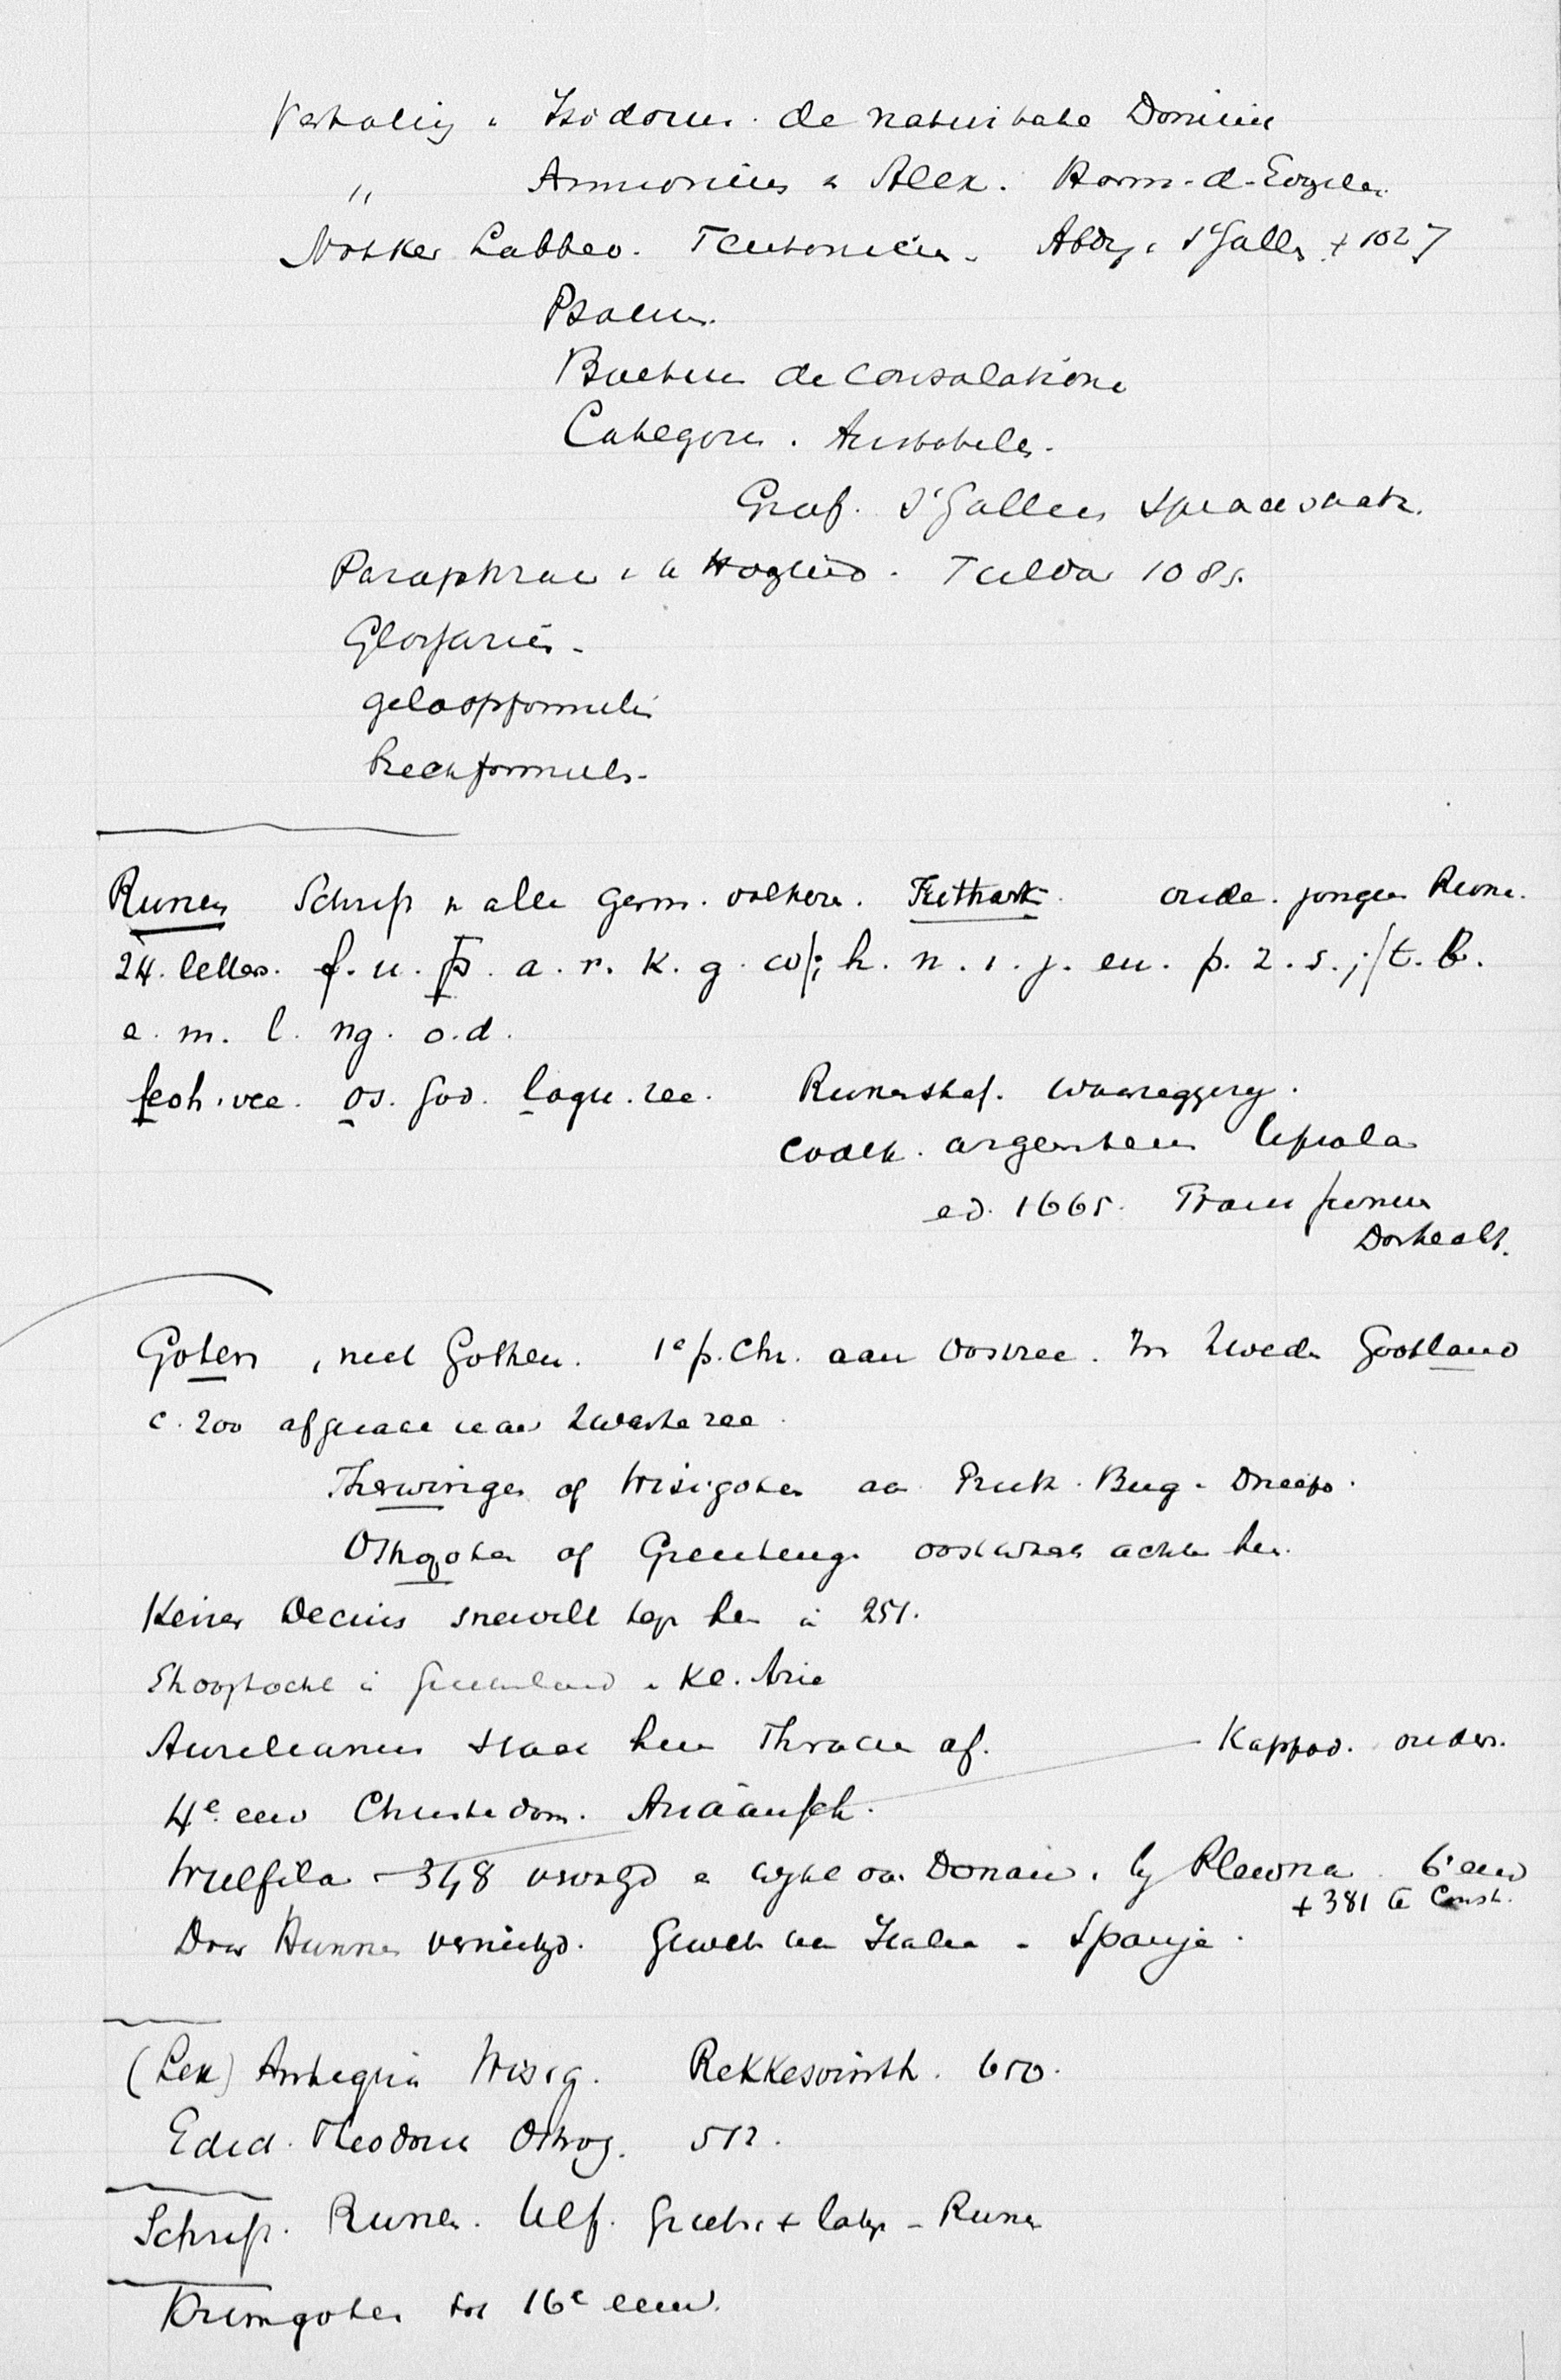 Vertaling v Isidorus. de nativitate Domini
" Ammonius v Alex. Harm. d. Evgelien
Notker Labbeo. Teutonicus. Abdij v St Gallen + 1027
Psalmen.
Boethius de consolatione
Categorien. Aristoteles.
Graf. St Gallens
Paraphrase v h Hooglied. Fulda 1085.
Glossariën.
geloofsformulie
Rechtformules.
Runen Schrift v alle Germ. volkeren. Futhark. oude. jongere Runen.
24. letters. f. u. þ. a. r. k. g. w/; h. n. i. j. eu. p. z. s.;/t. b.
e. m. l. ng. o. d.
feoh. vee. os. God. lagu. zee. Runenstaf. waarzegging.
codex. argenteus Upsala
ed. 1665. Franc Junius
Dordrecht.
Goten, niet Gothen. 1e p. Chr. aan Oostzee. In Zweden Gootland
c. 200 afgezakt naar Zwarte zee.
Therwingen of Wisigoten aa Pruth. Bug. Dnjepr.
Ostrogoten of Greutung. oostwaarts achter hen.
Keizer Decius sneuvelt tegn hen i 251.
Strooptocht i Griekenland v Kl. Azie
Aurelianus staat hun Thracie af. Kappad. ouders.
4e eeuw Christendom. Ariaansch.
Wulfila – 348 vervolgd e wijkt ov. Donau. bij Plewna. 6e eeuw
+ 381 te Const.
Door Hunnen vernietigd. Geweken naar Italie – Spanje.
(Lex) Antiqua Wisig. Rekkeswinth. 650.
Edict. Theodoric Ostrog. 512.
Schrift. Runen. Ulf. Grieksch + latijn – Runen
Krimgoten tot 16e eeuw.